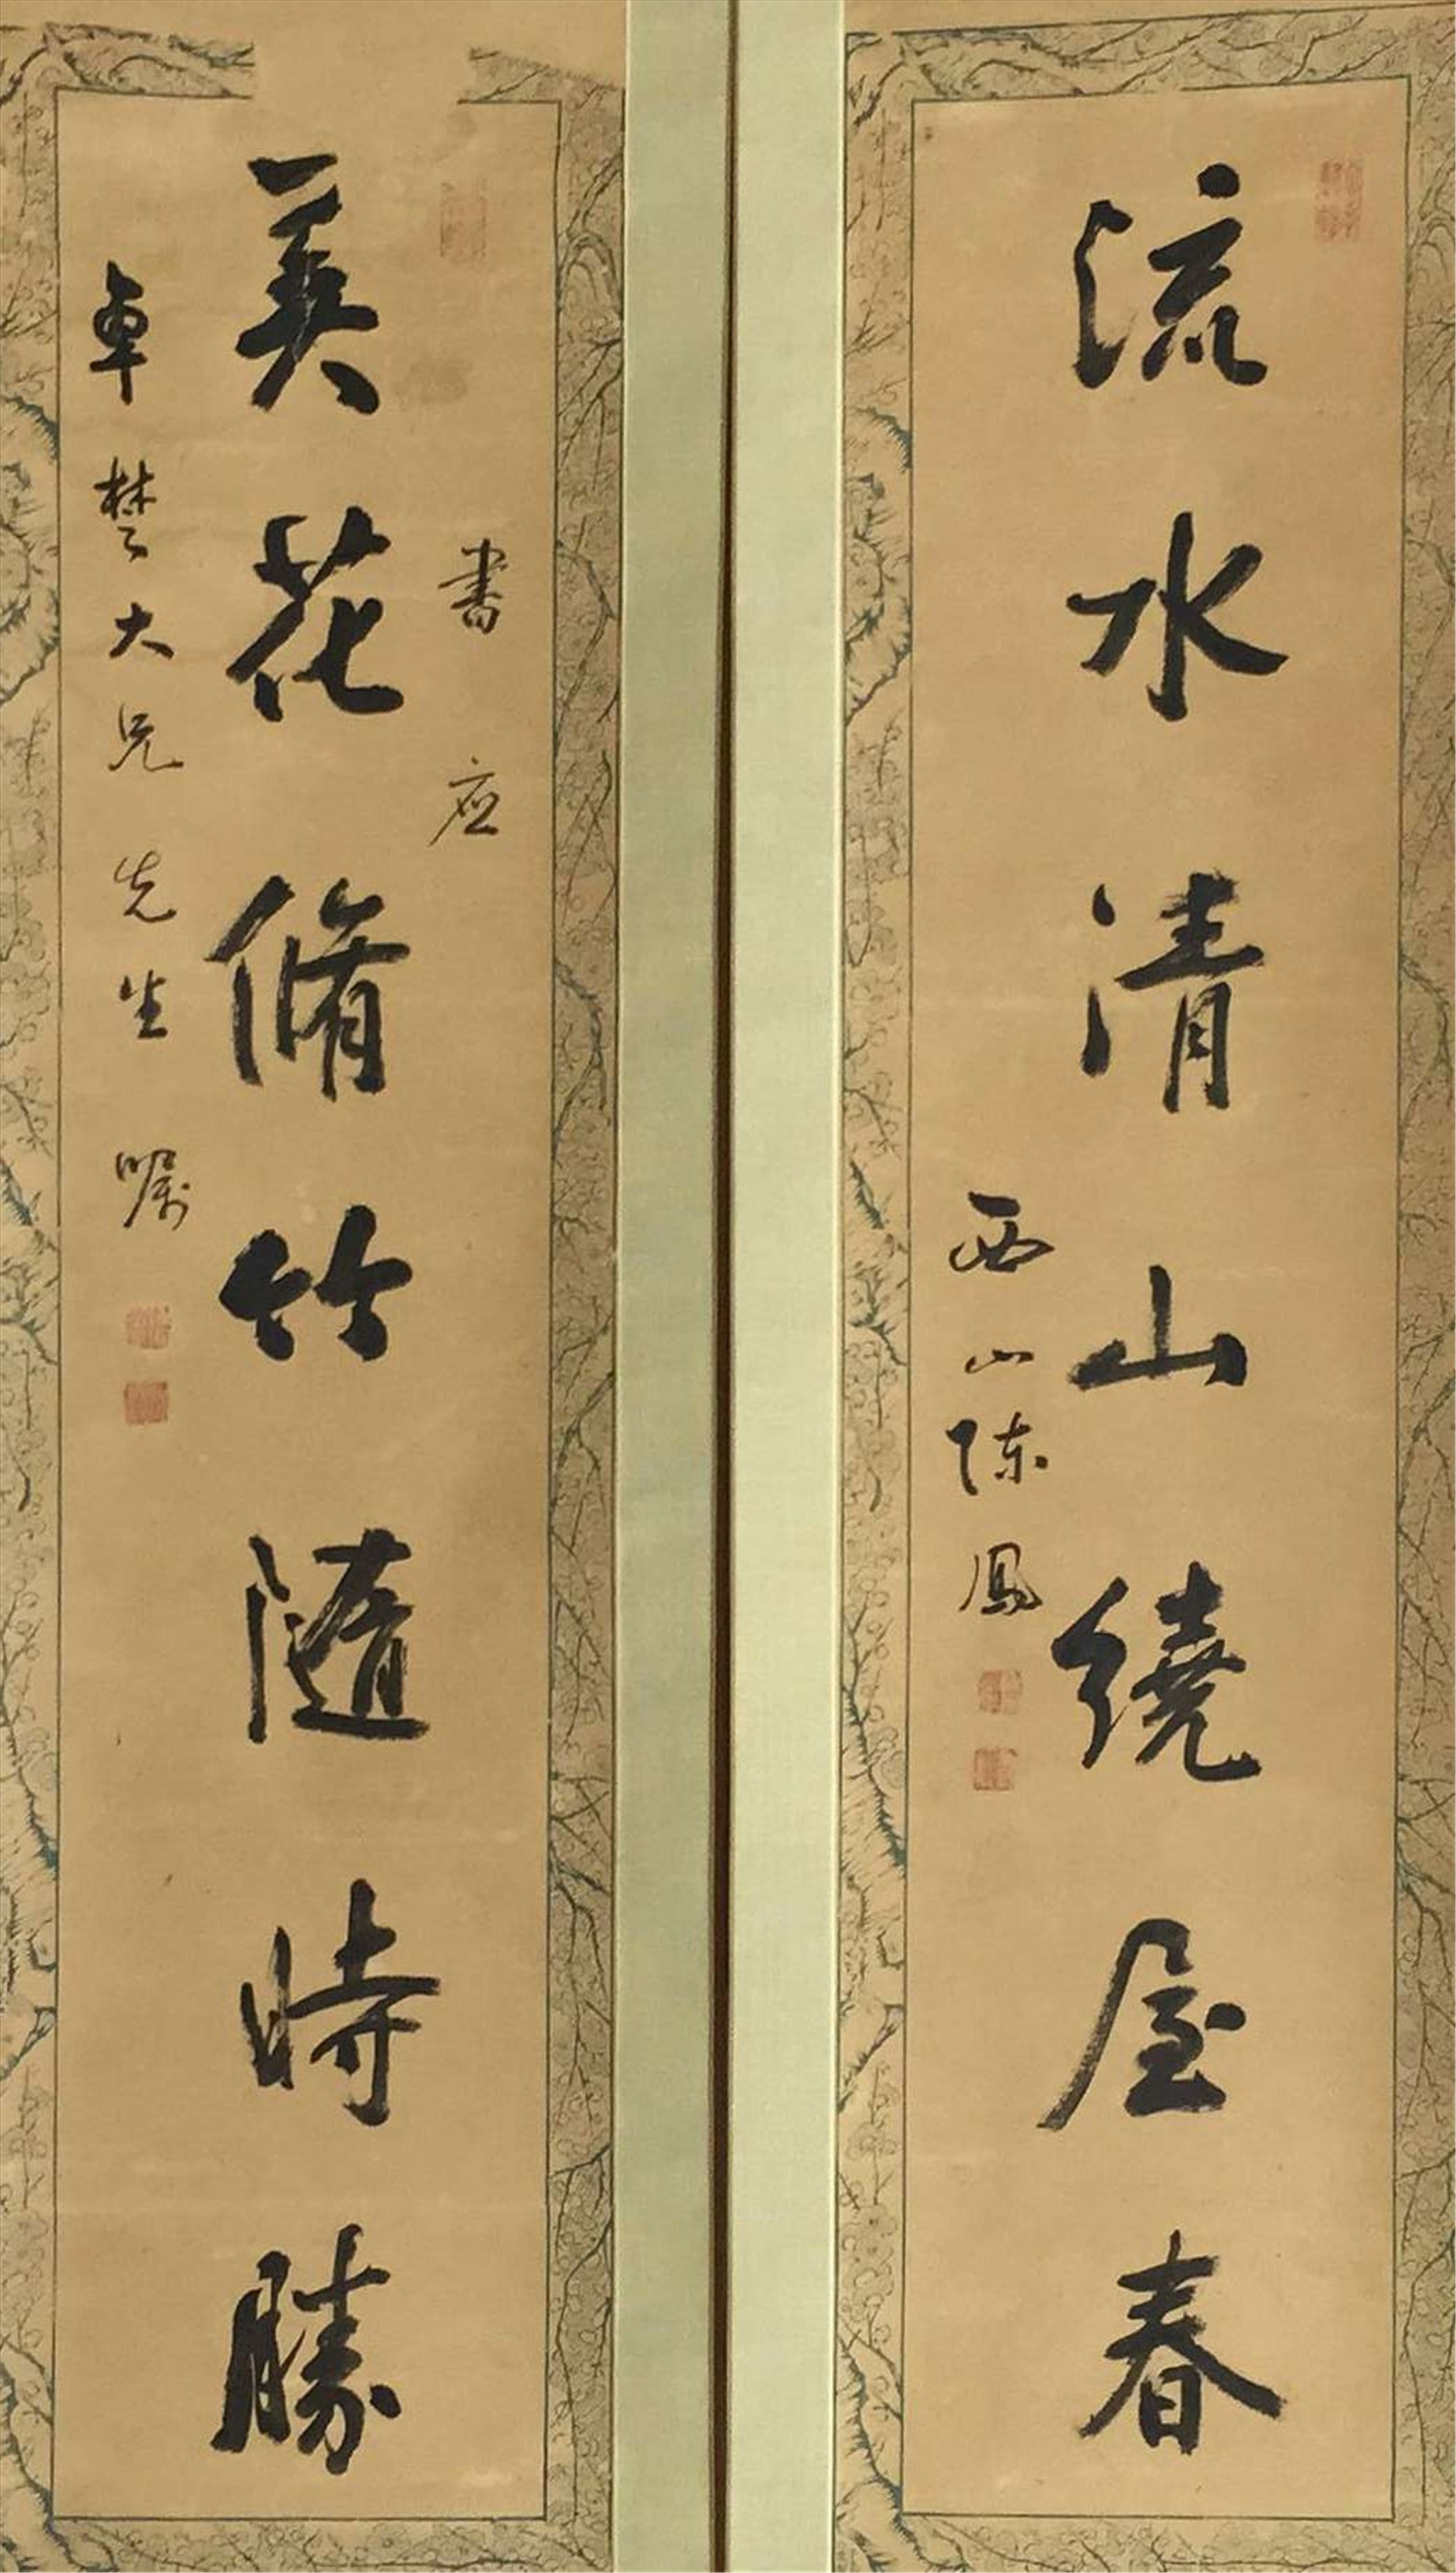 流水清山繞屋春
西山陳鳳
書应
美花脩竹隨時勝
卓楚大兄先生嘱